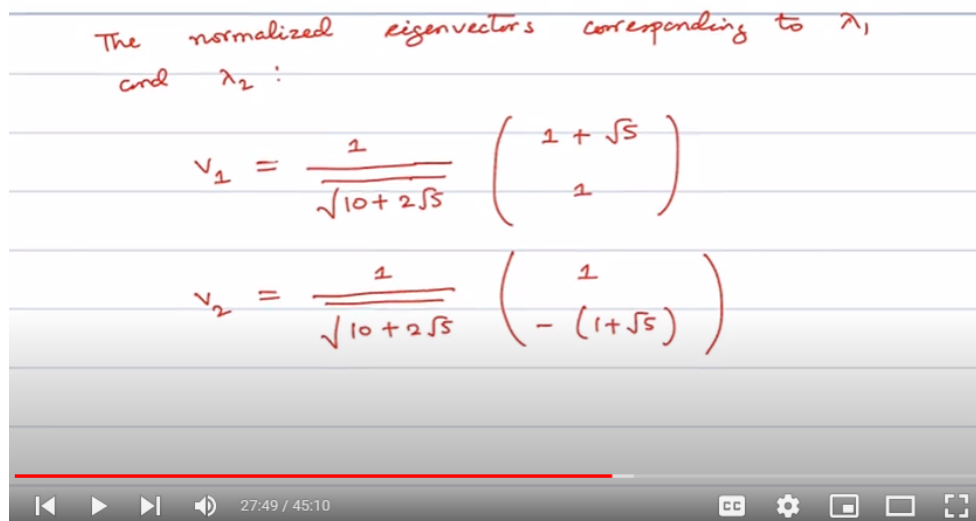 The normalized eigenvectors corresponding to λ₁
and λ₂ :
v₁ = 1/√(10 + 2√5) ( 1 + √5
1 )
v₂ = 1/√(10 + 2√5) ( 1
- (1+√5) )
27:49 / 45:10 CC